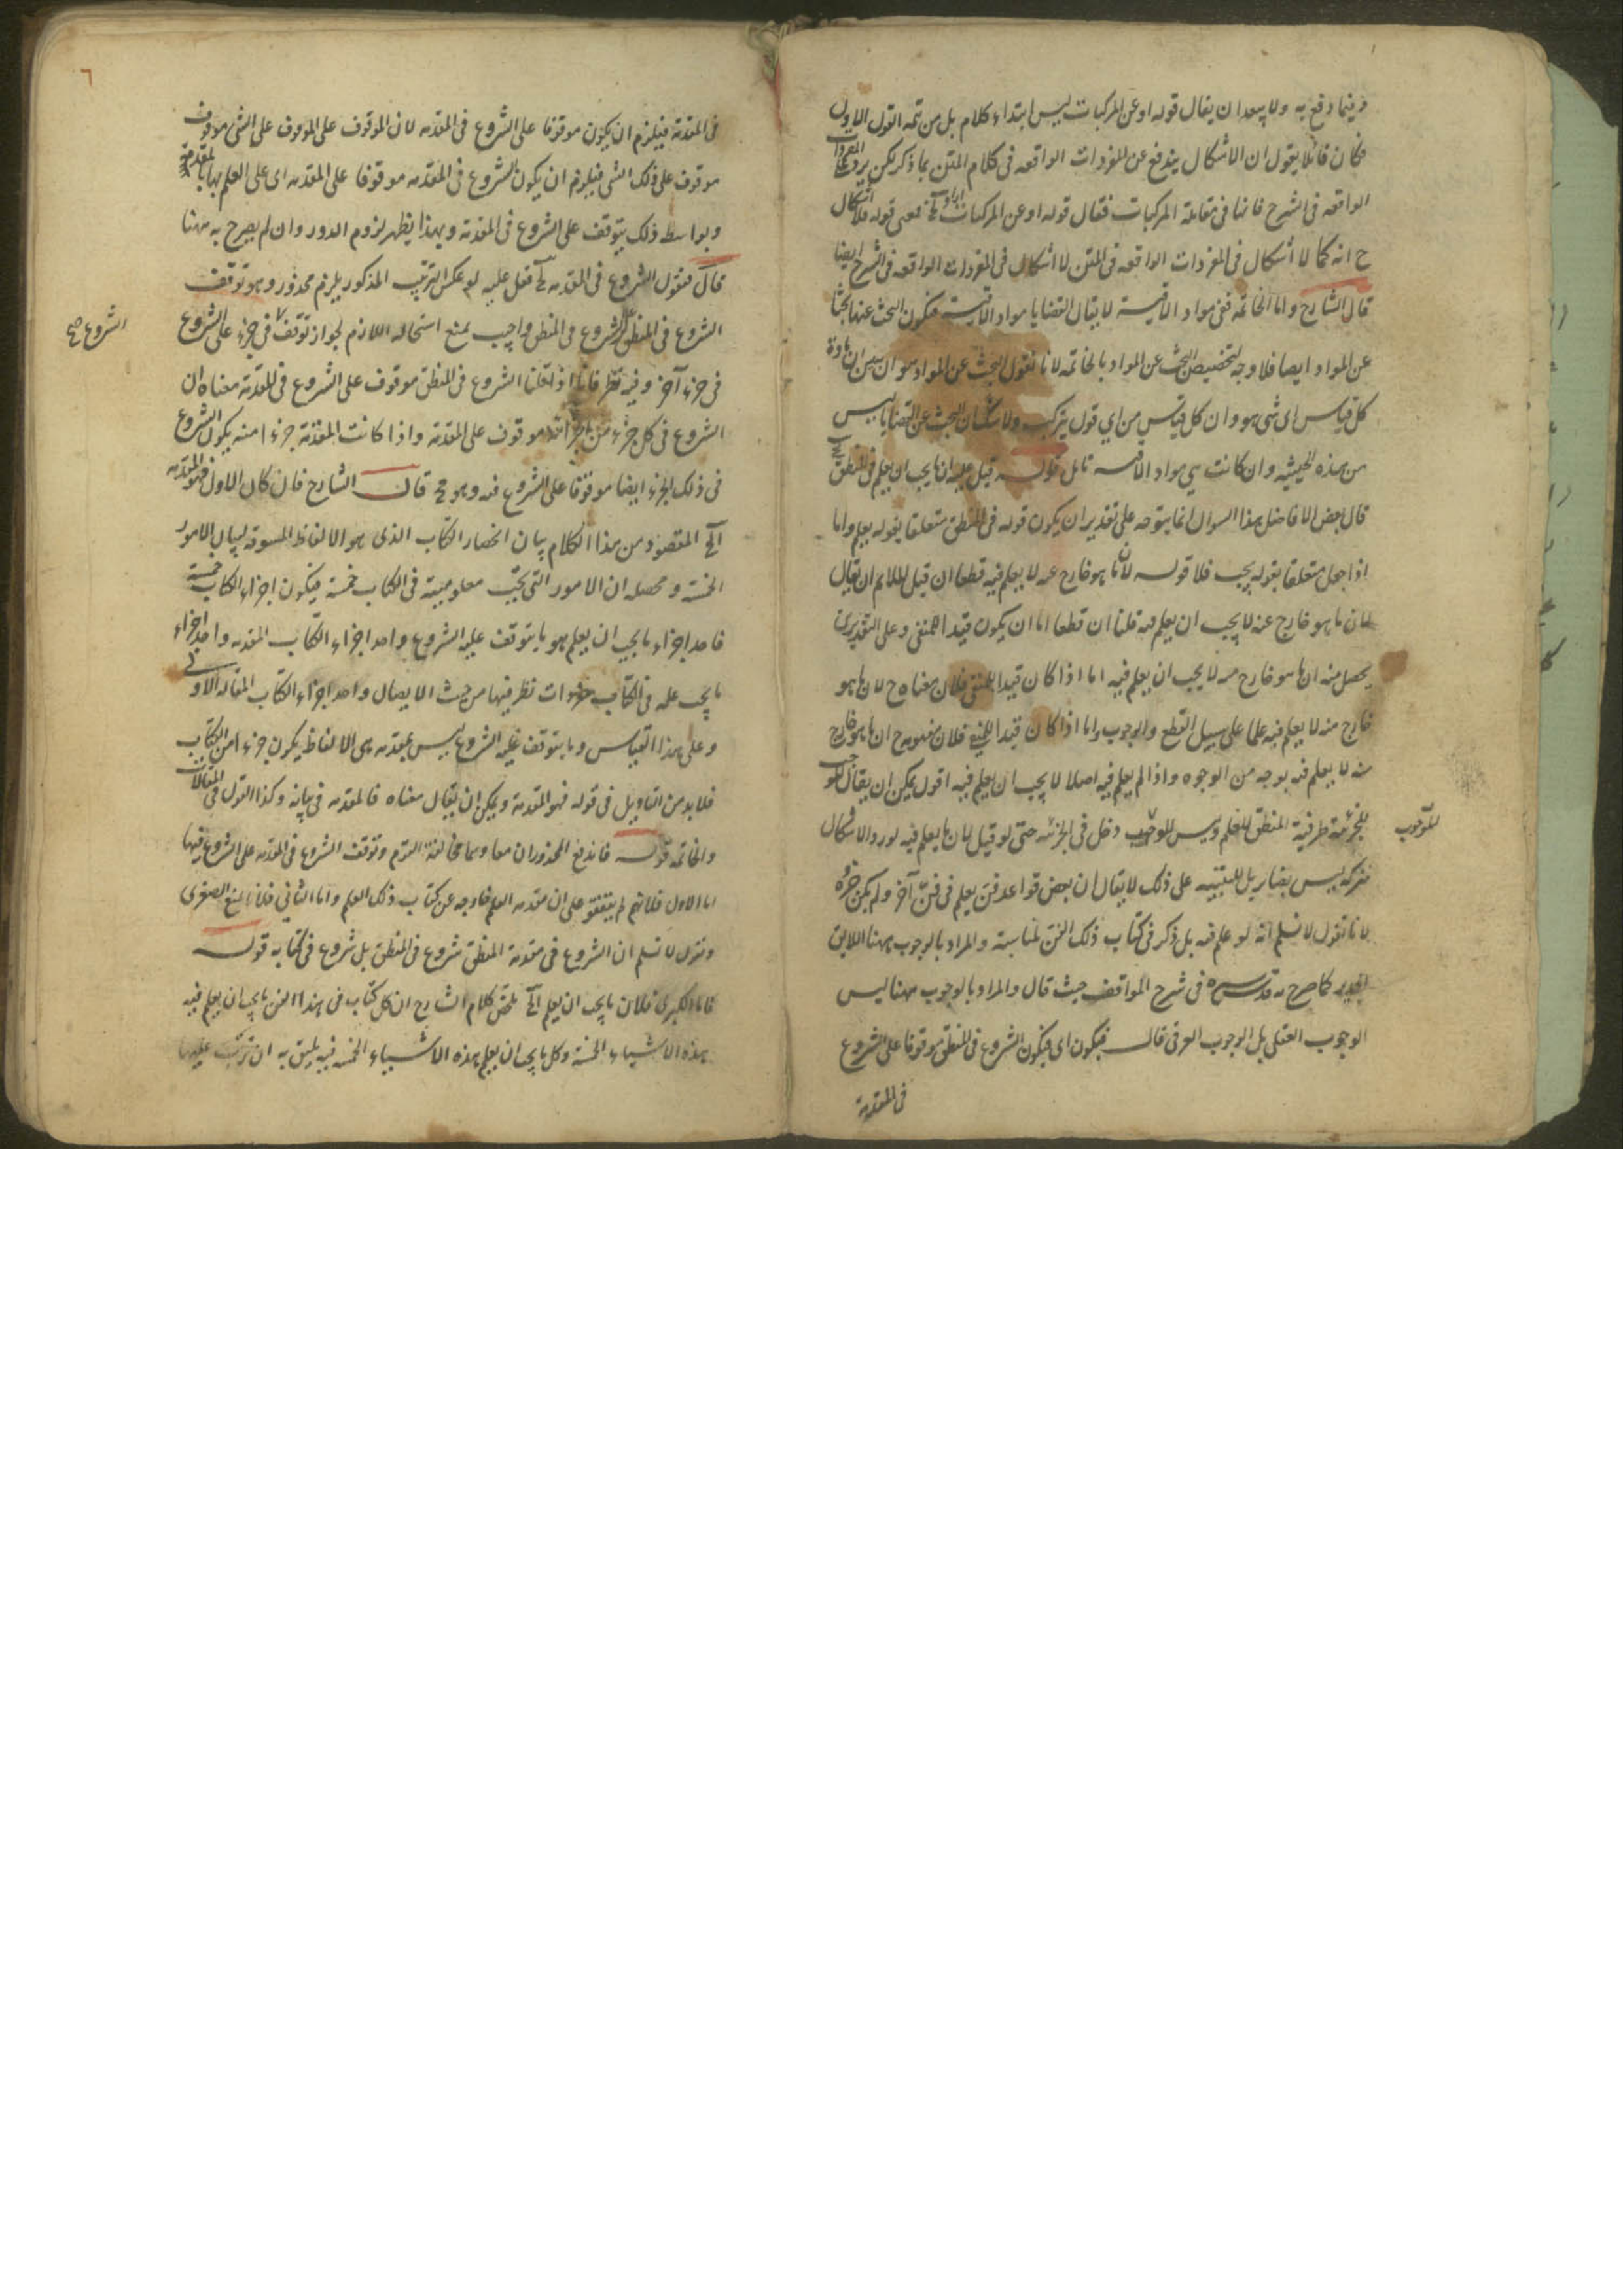 وفيما وقع به ولا يبعد ان يقال قوله او عن المركبات ليس ابتداء كلام بل من تتمة القول الاول
فكان قائلا يقول ان الاشكال يندفع عن المفردات الواقعه فى كلام المتن بما ذكر لكن يرد على المفردات
الواقعه فى الشرح فانها فى مقابلة المركبات فقال قوله او عن المركبات الخ فمعنى قوله فلا اشكال
ح انه كما لا اشكال فى المفردات الواقعه فى المتن لا اشكال فى المفردات الواقعه فى الشرح ايضا
قال الشارح واما الخاتمه ففى مواد الاقيسة لا يقال القضايا مواد الاقيسة فيكون البحث عنها بحثا
عن المواد ايضا فلا وجه لتخصيص البحث عن المواد بالخاتمه لانا نقول البحث عن المواد هو ان يبين ان مادة
كل قياس اى شى هو وان كل قياس من اي قول يتركب ولا شك ان البحث عن القضايا ليس
من هذه الحيثيه وان كانت هى مواد الاقيسه تامل قوله قيل عليه ان ما يجب ان يعلم فى المنطق الخ
قال بعض الافاضل هذا السوال انما يتوجه على تقدير ان يكون قوله فى المنطق متعلقا بقوله يعلم واما
اذا جعل متعلقا بقوله يجب فلا قوله لان ما هو خارج عنه لا يعلم فيه قطعا ان قيل الملايم ان يقال
لان ما هو خارج عنه لا يجب ان يعلم فيه قلنا ان قطعا اما ان يكون قيدا للمنفى وعلى التقديرين
يحصل منه ان ما هو خارج منه لا يجب ان يعلم فيه اما اذا كان قيدا للمنفى فلان معناه ح لان ما هو
خارج منه لا يعلم فيه علما على سبيل القطع والوجوب واما اذا كان قيدا للنفى فلان مفهومه ح ان ما هو خارج
منه لا يعلم فيه بوجه من الوجوه واذا لم يعلم فيه اصلا لا يجب ان يعلم فيه اقول يمكن ان يقال الموجب
للجزئية ظرفية المنطق للعلم وليس للوجوب دخل فى الجزئيه حتى لو قيل لان ما يعلم فيه لورد الاشكال
للوجوب
فتركه ليس بضاير بل للتنبيه على ذلك لا يقال ان بعض قواعد فن يعلم فى فن آخر ولم يكن جزءه
لانا نقول لا نسلم انه لو علم فيه بل ذكر فى كتاب ذلك الفن لمناسبة والمراد بالوجوب ههنا اللايق
كما صرح به قدس سره فى شرح المواقف حيث قال والمراد بالوجوب ههنا ليس
الوجوب العقلى بل الوجوب العرفى قال فيكون اى فيكون الشروع فى المنطق موقوفا على الشروع
فى المقدمة
٦
فى المقدمة فيلزم ان يكون موقوفا على الشروع فى المقدمه لان الموقوف على الموقوف على الشى موقوف
موقوف على ذلك الشى فيلزم ان يكون الشروع فى المقدمه موقوفا على المقدمه اى على العلم بها بالمقدمة
وبواسط ذلك يتوقف على الشروع فى المقدمة وبهذا يظهر لزوم الدور وان لم يصرح به ههنا
قال فنقول الشروع فى المقدمه الخ قيل عليه لو عكس الترتيب المذكور يلزم محذور وهو توقف
الشروع فى المنطق الشروع فى المنطق واجيب بمنع استحاله اللازم لجواز توقف فى جزء على الشروع
الشروع صح
فى جزء آخر وفيه نظر فانا اذا قلنا الشروع فى المنطق موقوف على الشروع فى المقدمة معناه ان
الشروع فى كل جزء من اجزائه موقوف على المقدمة واذا كانت المقدمة جزءا منه يكون الشروع
فى ذلك الجزء ايضا موقوفا على الشروع فيه وهو مح قال الشارح فان كان الاول فهو المقدمه
الخ المقصود من هذا الكلام بيان انحصار الكتاب الذى هو الالفاظ المسوقة لبيان الامور
الخمسة ومحصله ان الامور التى يجب معلوميته فى الكتاب خمسة فيكون اجزاء الكتاب خمسة
فاحد اجزاء ما يجب ان يعلم هو ما يتوقف عليه الشروع واحد اجزاء الكتاب المقدمه واحد اجزاء
ما يجب علمه فى الكتاب مفردات نظر فيها من حيث الايصال واحد اجزاء الكتاب المقاله الاولى
وعلى هذا القياس وما يتوقف عليه الشروع ليس بمقدمه هى الالفاظ يكون جزءا من الكتاب
فلا بد من التاويل فى قوله فهو المقدمة ويمكن ان يقال معناه فالمقدمه فى بيانه وكذا القول فى المقالات
والخاتمه قوله فاندفع المحذوران معا وهما مخالفة القوم وتوقف الشروع فى المقدمه على الشروع فيها
اما الاول فلانهم لم يتفقوا على ان مقدمه العلم خارجه عن كتاب ذلك العلم واما الثانى فلانا نمنع الصغرى
ونقول لا نسلم ان الشروع فى مقدمة المنطق شروع فى المنطق بل شروع فى كتابه قوله
فاما الكبرى فلان ما يجب ان يعلم الخ ملخص كلام الشارح ان كل كتاب فى هذا الفن ما يجب ان يعلم فيه
هذه الاشياء الخمسة وكل ما يجب ان يعلم هذه الاشياء الخمسه فيه يليق به ان يرتب عليها